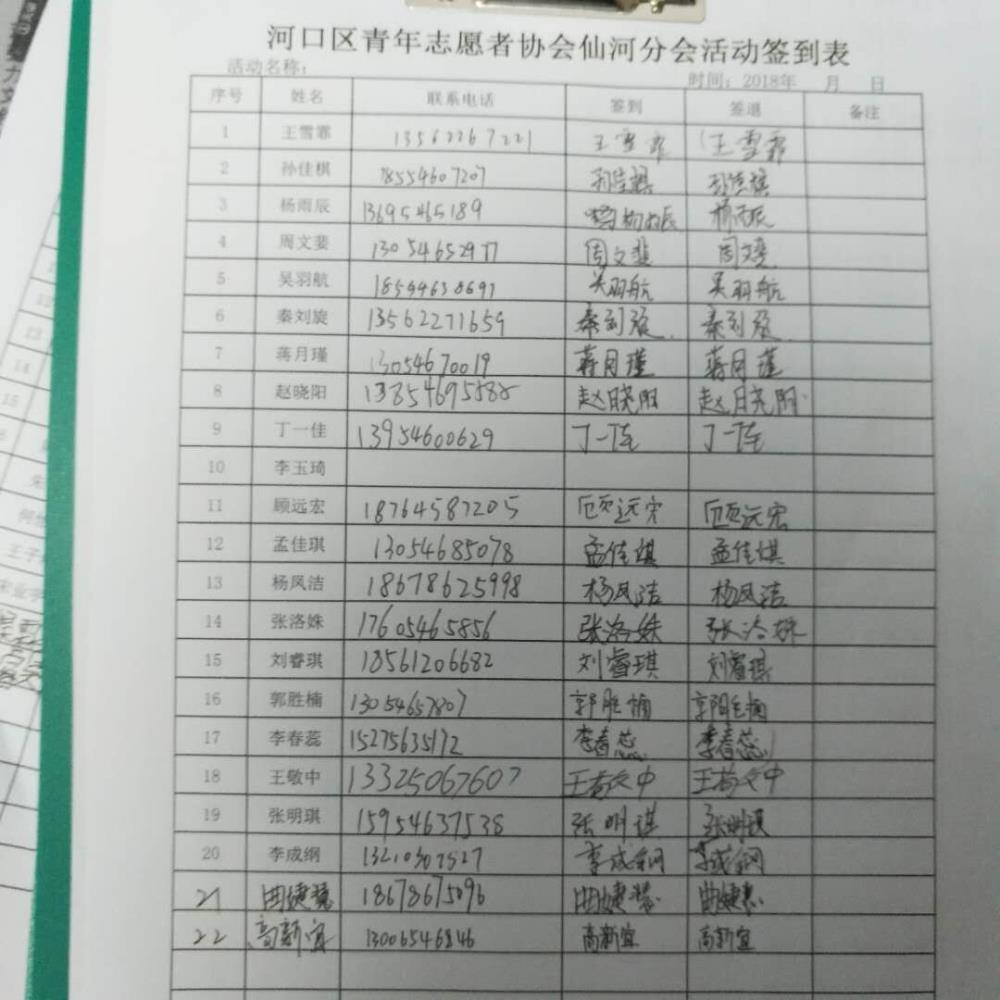 河口区青年志愿者协会仙河分会活动签到表
活动名称： 时间：2018年 月 日
序号 姓名 联系电话 签到 签退 备注
1 王雪霏 13562267221 王雪霏 王雪霏
2 孙佳棋 18554607207 孙佳棋 孙佳棋
3 杨雨辰 13695465189 杨雨辰 杨雨辰
4 周文斐 13054652977 周文斐 周文斐
5 吴羽航 吴羽航 吴羽航
6 秦刘旋 13562271659 秦刘旋 秦刘旋
7 蒋月瑾 13054670019 蒋月瑾 蒋月瑾
8 赵晓阳 赵晓阳 赵晓阳
9 丁一佳 13954600629 丁一佳 丁一佳
10 李玉琦
11 顾远宏 18764587205 顾远宏 顾远宏
12 孟佳琪 13054685078 孟佳琪 孟佳琪
13 杨凤洁 18678625998 杨凤洁 杨凤洁
14 张洛姝 17605465856 张洛姝 张洛姝
15 刘睿琪 18561206682 刘睿琪 刘睿琪
16 郭胜楠 13054657807 郭胜楠 郭胜楠
17 李春蕊 15275635172 李春蕊 李春蕊
18 王敬中 13325067607 王敬中 王敬中
19 张明琪 15954637538 张明琪 张明琪
20 李成纲 13210307527 李成纲 李成纲
21 曲婕慧 18678675096 曲婕慧 曲婕慧
22 高新宜 13006546846 高新宜 高新宜